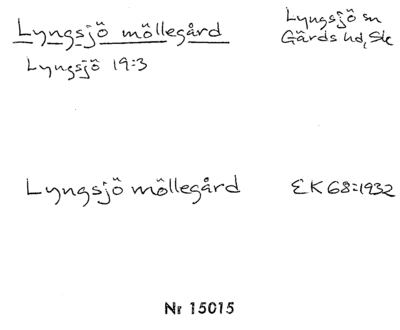 Lyngsjö möllegård
Lyngsjö 19:3
Lyngsjö sn
Gärds hd, Sk
Lyngsjö möllegård EK 68:1932
Nr 15015